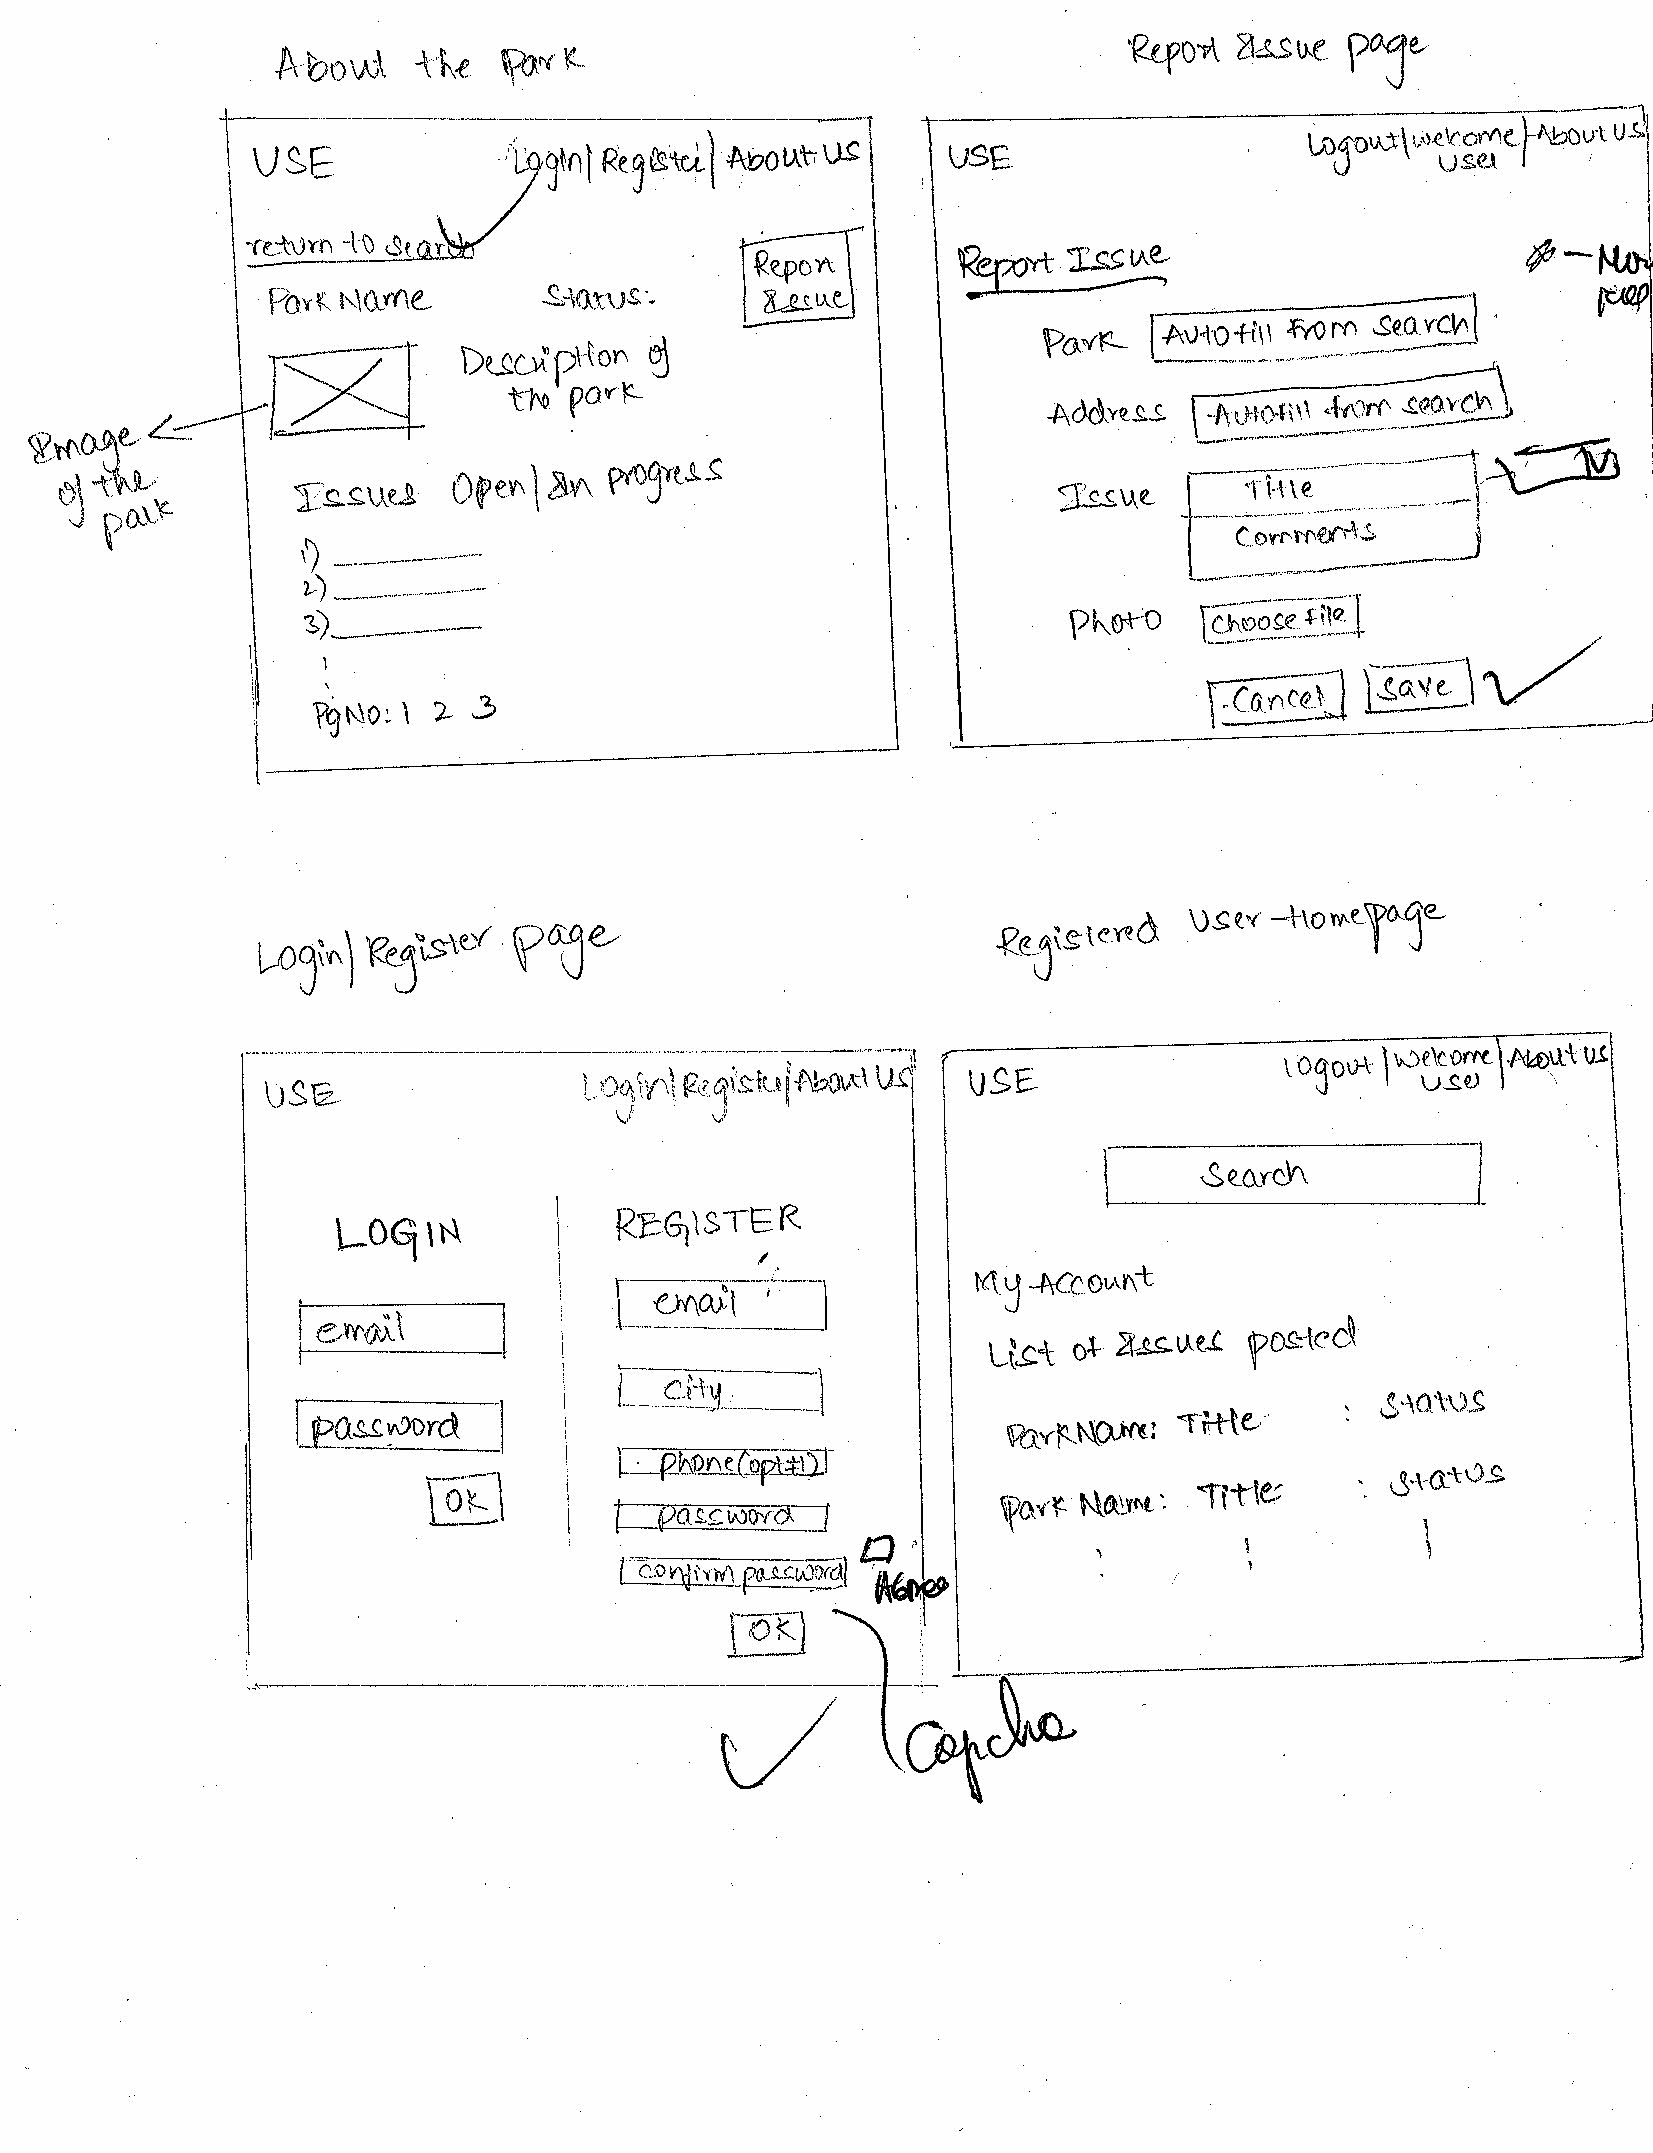 About the Park
USE Login/Register/About US
return to search
Report
Issue
Park Name Status:
Description of
the park
Image
of the
park
Issues Open/In progress
1)
2)
3)
Pg No: 1 2 3
Report Issue page
USE Logout/Welcome/About US
User
Report Issue
Park Autofill from search
Address Autofill from search
Issue Title
Comments
Photo Choose file
Cancel Save
Login/Register page
USE Login/Register/About US
LOGIN
email
password
OK
REGISTER
email
city
phone(opt#1)
password
confirm password
Agree
OK
Capcha
Registered User-Homepage
USE Logout/Welcome/About US
User
Search
My Account
List of Issues posted
ParkName: Title : Status
Park Name: Title : Status